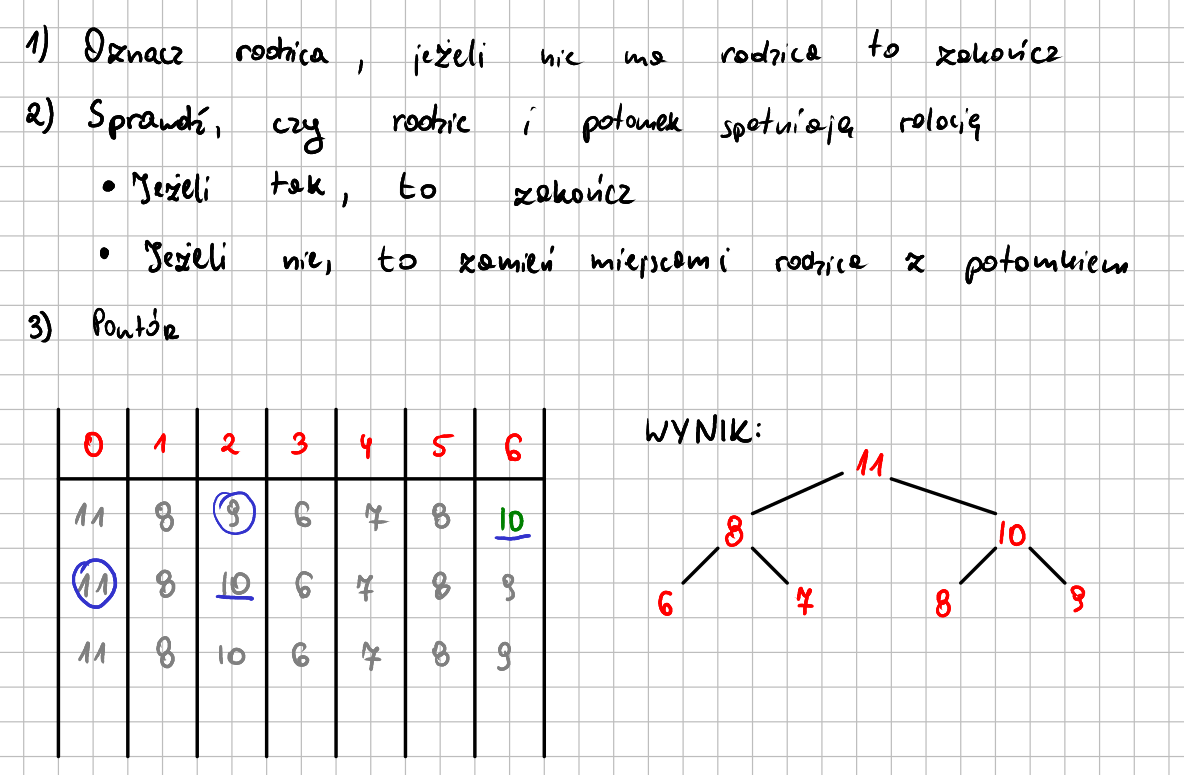 1) Oznacz rodzica, jeżeli nie ma rodzica to zakończ
2) Sprawdź, czy rodzic i potomek spełniają relację
• Jeżeli tak, to zakończ
• Jeżeli nie, to zamień miejscami rodzica z potomkiem
3) Powtórz
0 1 2 3 4 5 6
11 8 9 6 7 8 10
11 8 10 6 7 8 9
11 8 10 6 7 8 9
WYNIK:
11
8 10
6 7 8 9